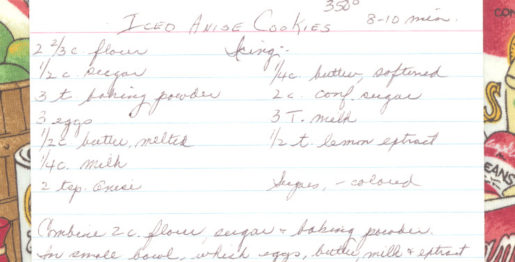 350° 8-10 min.
Iced Anise Cookies
2 2/3 c. flour
1/2 c. sugar
3 t baking powder
3 eggs
1/2 c butter, melted
1/4 c. milk
2 tsp. Anise
Icing:-
1/4 c. butter, softened
2 c. conf. sugar
3 T. milk
1/2 t. lemon extract
Sugar, - colored
Combine 2 c. flour, sugar + baking powder.
In small bowl, whisk eggs, butter, milk + extract